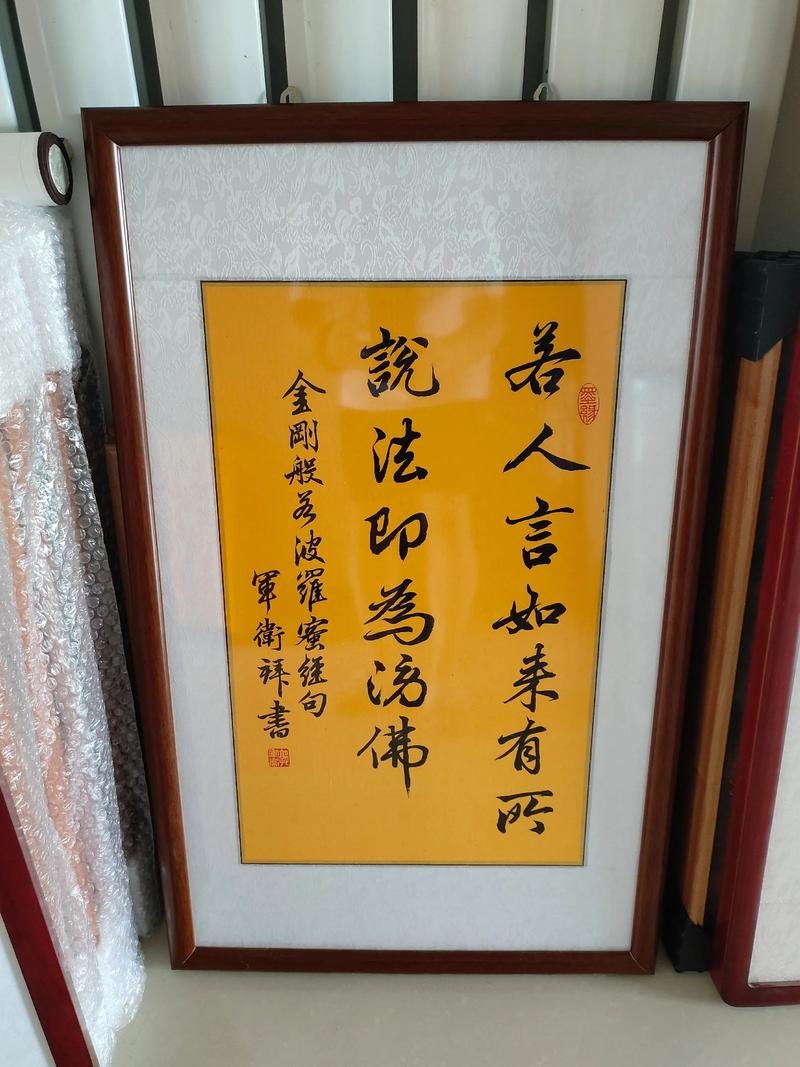 若人言如来有所
說法即為謗佛
金剛般若波羅蜜經句
軍衛拜書
墨緣